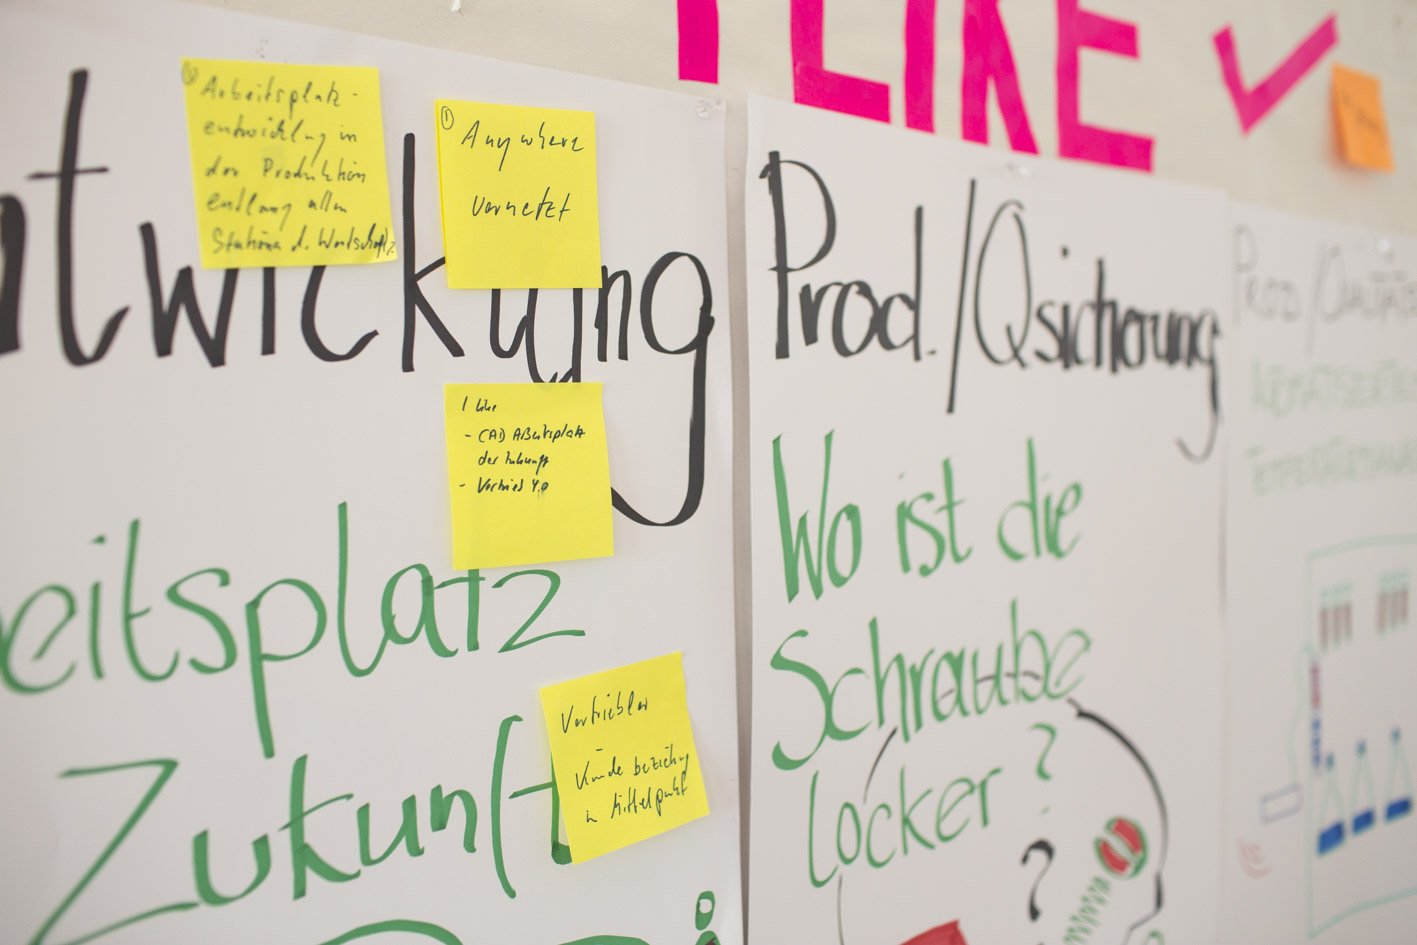 I LIKE
ntwicklung
Arbeitsplatz-
entwicklung in
der Produktion
entlang allen
① Anywhere
vernetzt
I like
- CAD Arbeitsplatz
der Zukunft
- Vertrieb 4.0
eitsplatz
Zukunft
Vertriebler
Kunde beziehung
in Mittelpunkt
Prod./Qsicherung
Wo ist die
Schraube
locker?
?
PROD/QUALITÄ